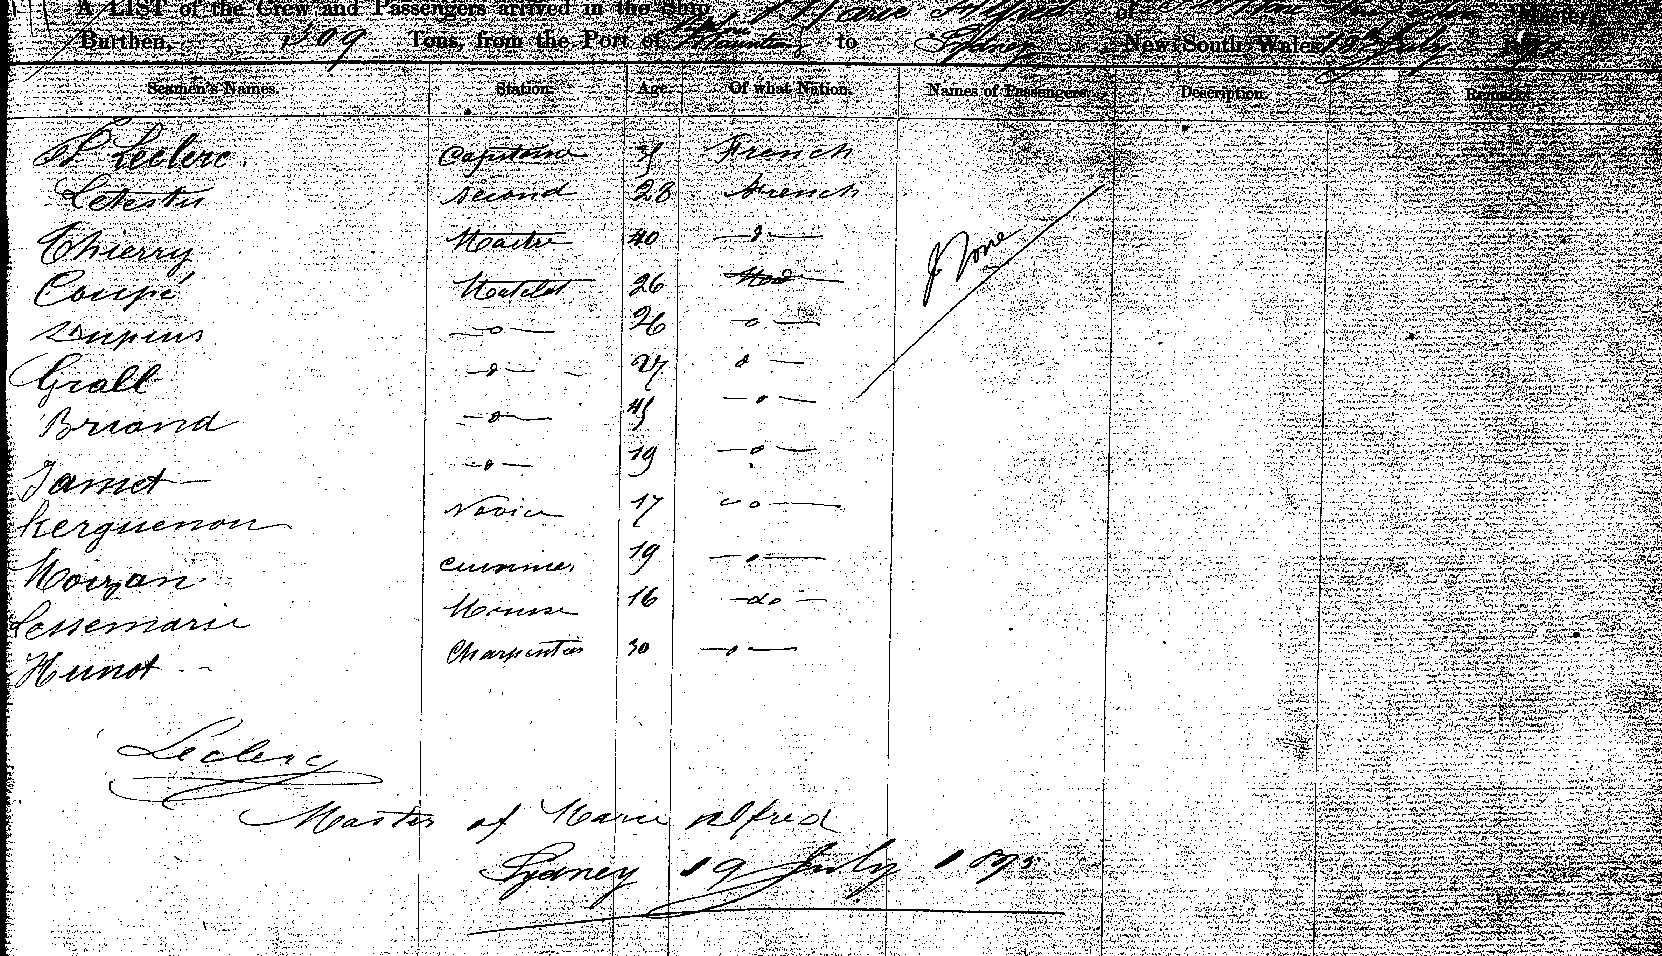 A LIST of the Crew and Passengers arrived in the Ship Marie Alfred of
Burthen, Tons, from the Port of to Sydney New South Wales July
Seamen's Names. Station. Age. Of what Nation. Names of Passengers. Description. Remarks.
Leclerc. Capitaine French
Letestu second 28 French
Thierry Maitre 40 -o-
Coupé Matelot 26
Dupuis -o- 26 -o-
Grall -o- 27 o-
Briand -o- 45 -o-
Jamet -o- 19 -o-
Kerguenou Novice 17 -o-
Moizan cuisinier 19 -o-
Lessemarie Mousse 16 -do-
Hunot Charpentier 30 -o-
None
Leclerc
Master of Marie Alfred
Sydney 19 July 1895